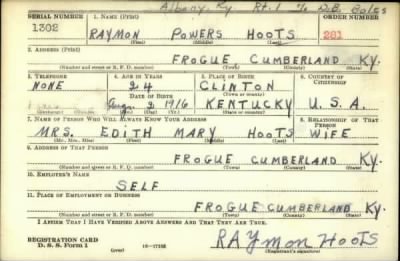 Albany, Ky Rt. 1 % D.B. Coles
SERIAL NUMBER 1. NAME (Print) ORDER NUMBER
1302 RAYMON POWERS HOOTS 281
(First) (Middle) (Last)
2. ADDRESS (Print)
FROGUE CUMBERLAND KY.
(Number and street or R. F. D. number) (Town) (County) (State)
3. TELEPHONE 4. AGE IN YEARS 5. PLACE OF BIRTH 6. COUNTRY OF CITIZENSHIP
NONE 24 CLINTON
DATE OF BIRTH (Town or county)
Aug. 2 1916 KENTUCKY U.S.A.
(Exchange) (Number) (Mo.) (Day) (Yr.) (State or country)
7. NAME OF PERSON WHO WILL ALWAYS KNOW YOUR ADDRESS 8. RELATIONSHIP OF THAT PERSON
MRS. EDITH MARY HOOTS WIFE
(Mr., Mrs., Miss) (First) (Middle) (Last)
9. ADDRESS OF THAT PERSON
FROGUE CUMBERLAND KY.
(Number and street or R. F. D. number) (Town) (County) (State)
10. EMPLOYER'S NAME
SELF
11. PLACE OF EMPLOYMENT OR BUSINESS
FROGUE CUMBERLAND KY.
(Number and street or R. F. D. number) (Town) (County) (State)
I AFFIRM THAT I HAVE VERIFIED ABOVE ANSWERS AND THAT THEY ARE TRUE.
REGISTRATION CARD
D. S. S. Form 1 (over) 16-17105 RAYmon HOOTS
(Registrant's signature)